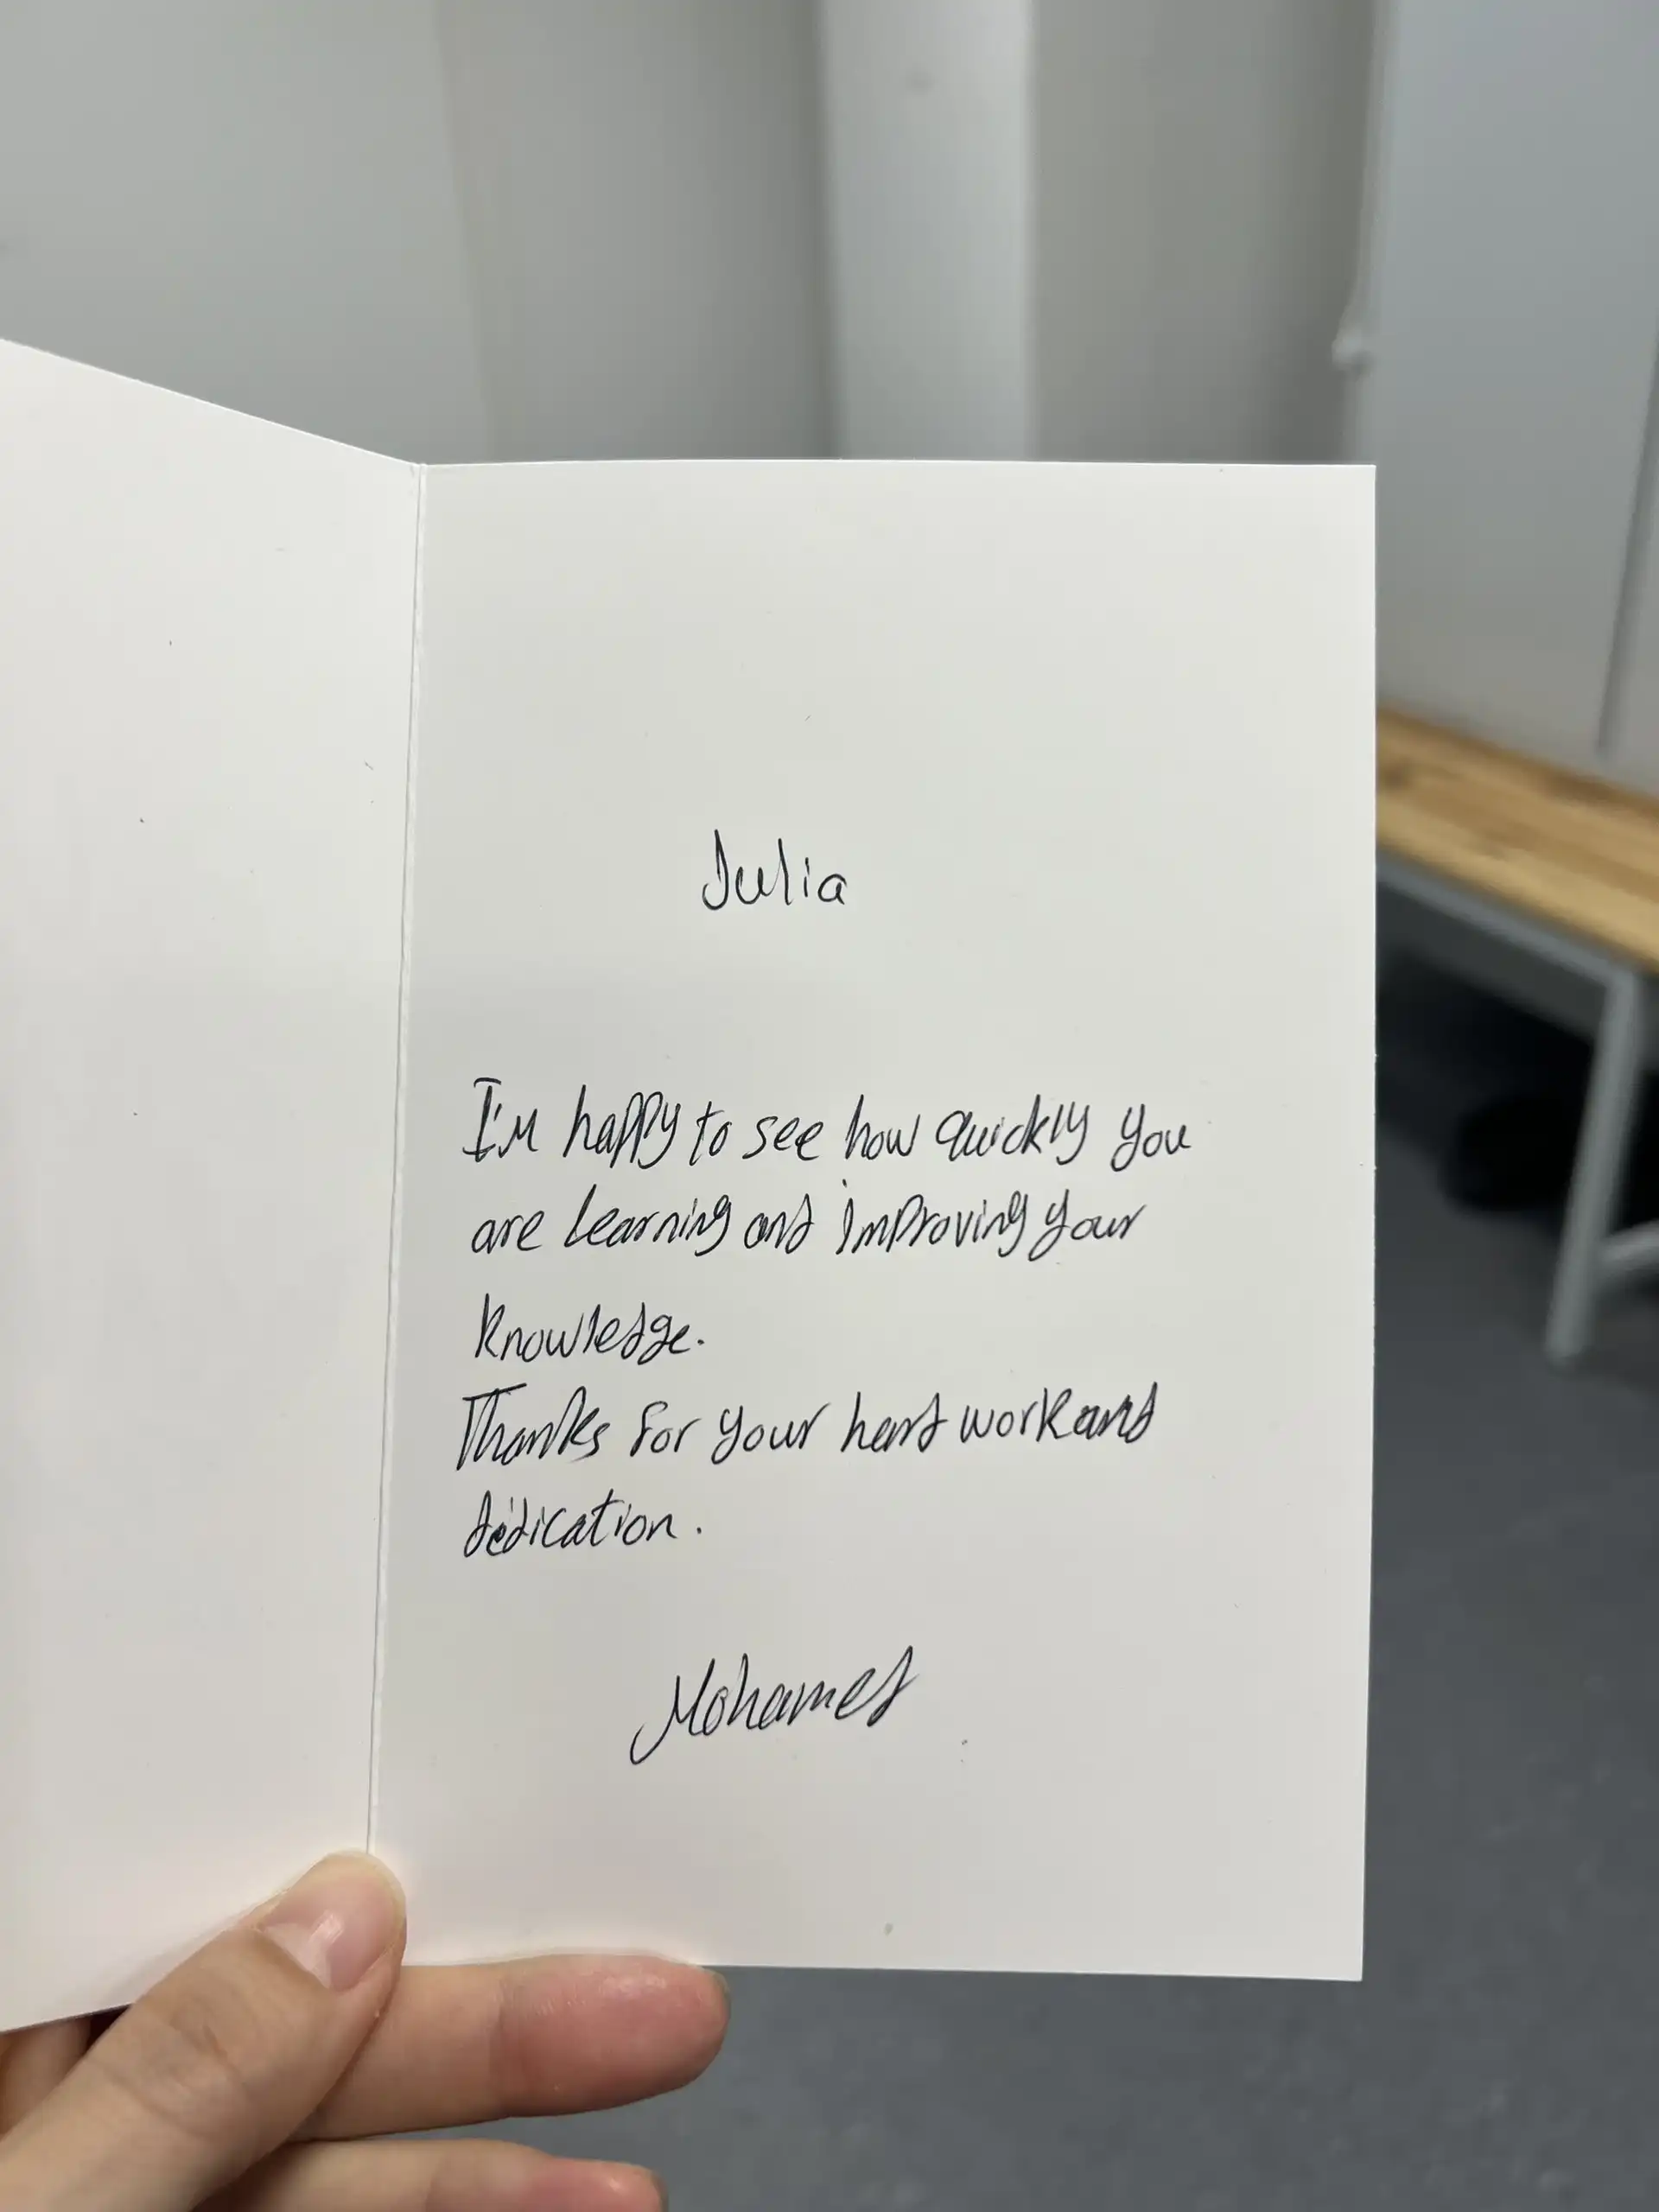 Julia
I'm happy to see how quickly you
are learning and improving your
knowledge.
Thanks for your hard work and
dedication.
Mohamed